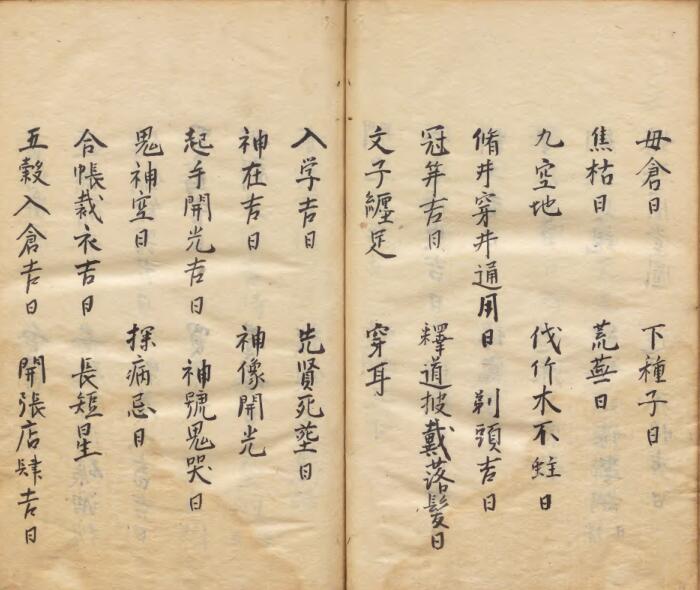 毋倉日 下種子日
焦枯日 荒蕪日
九空地 伐竹木不蛀日
脩井穿井通用日 剃頭吉日
冠笄吉日 釋道披戴落髮日
文子纏足 穿耳
入学吉日 先贤死塟日
神在吉日 神像開光
起手開光吉日 神號鬼哭日
鬼神空日 探病忌日
合帳裁衣吉日 長短星
五榖入倉吉日 開張店肆吉日